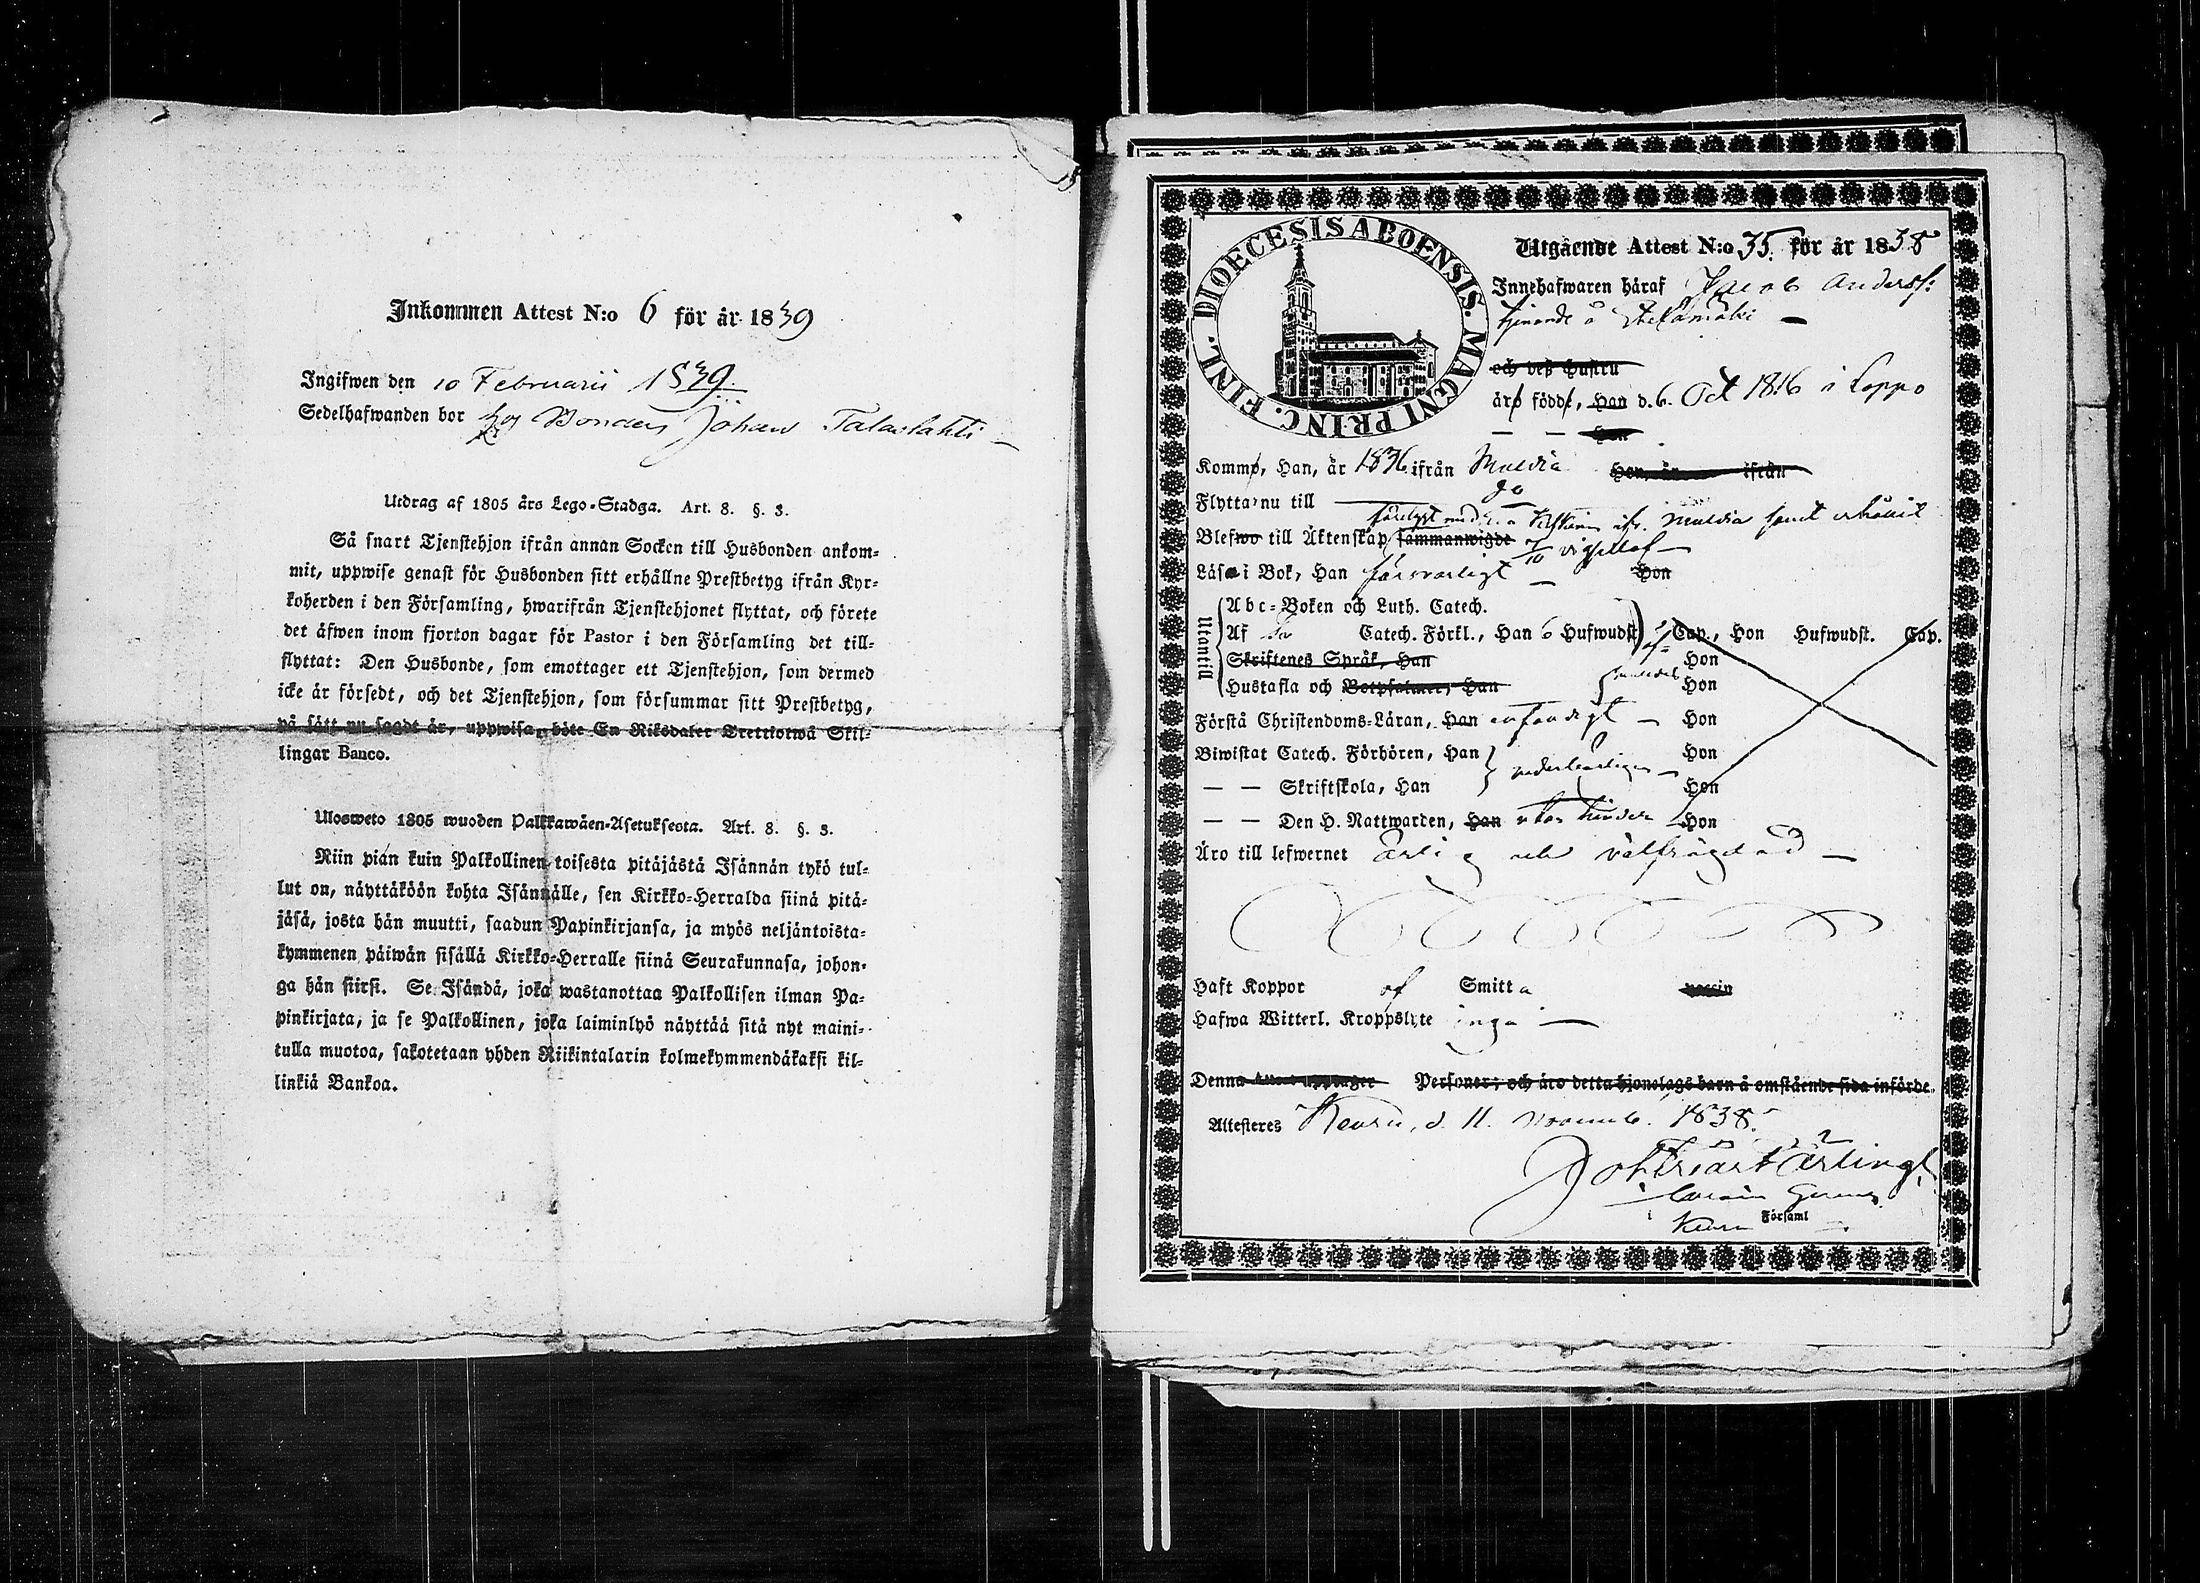 Inkommen Attest N:o 6 för år 1839
Ingifwen den 10 Februarii 1839.
Sedelhafwanden bor hos Bonden Johan Talaslahti
Utdrag af 1805 års Lego-Stadga. Art. 8. §. 3.
Så snart Tjenstehjon ifrån annan Socken till Husbonden ankom-
mit, uppwise genast för Husbonden sitt erhållne Prestbetyg ifrån Kyr-
koherden i den Församling, hwarifrån Tjenstehjonet flyttat, och förete
det äfwen inom fjorton dagar för Pastor i den Församling det till-
flyttat: Den Husbonde, som emottager ett Tjenstehjon, som dermed
icke är försedt, och det Tjenstehjon, som försummar sitt Prestbetyg,
på sätt nu sagdt är, uppwisa, böte En Riksdaler Trettiotwå Skil-
lingar Banco.
Ulosweto 1805 wuoden Palkkawäen-Asetuksesta. Art. 8. §. 3.
Niin pian kuin Palkollinen toisesta pitäjästä Isännän tykö tul-
lut on, näyttäköön kohta Isännälle, sen Kirkko-Herralda siinä pitä-
jäsä, josta hän muutti, saadun Papinkirjansa, ja myös neljäntoista-
kymmenen päiwän sisällä Kirkko-Herralle siinä Seurakunnasa, johon-
ga hän siirsi. Se Isändä, joka wastanottaa Palkollisen ilman Pa-
pinkirjata, ja se Palkollinen, joka laiminlyö näyttää sitä nyt maini-
tulla muotoa, sakotetaan yhden Riikintalarin kolmekymmendäkaksi kil-
linkiä Bankoa.
DIOECESIS ABOENSIS. MAGNI PRINC. FINL.
Utgående Attest N:o 35. för år 1838
Innehafwaren häraf Jacob Anderss:
tjenande å
och deß hustru
äro födde, Han d. 6. Oct 1816 i Loppo
— — Hon
Komme, Han, år 1836 ifrån Muldia Hon, år ifrån
Flytta nu till do
ifr. Muldia samt erhållit
Blefwo till Äktenskap sammanwigde
Läsa i Bok, Han försvarligt — Hon
Utantill
Abc-Boken och Luth. Catech.
Af Catech. Förkl., Han 6 Hufwudst. Cap., Hon Hufwudst. Cap.
Skriftenes Språk, Han Hon
Hustafla och Botpsalmer, Han Hon
Förstå Christendoms-Läran, Han enfaldigt — Hon
Biwistat Catech. Förhören, Han Hon
vederbörligen —
— — Skriftskola, Han Hon
— — Den H. Nattwarden, Han utan hinder Hon
Äro till lefwernet ärlig och välfrägdad —
Haft Koppor af Smitta waccin
Hafwa Witterl. Kroppslyte inga —
Denna Attest upptager Personer; och äro detta hjonelags barn å omstående sida införde.
Attesteres Keuru, d. 11. Novemb. 1838.
i Keuru Församl